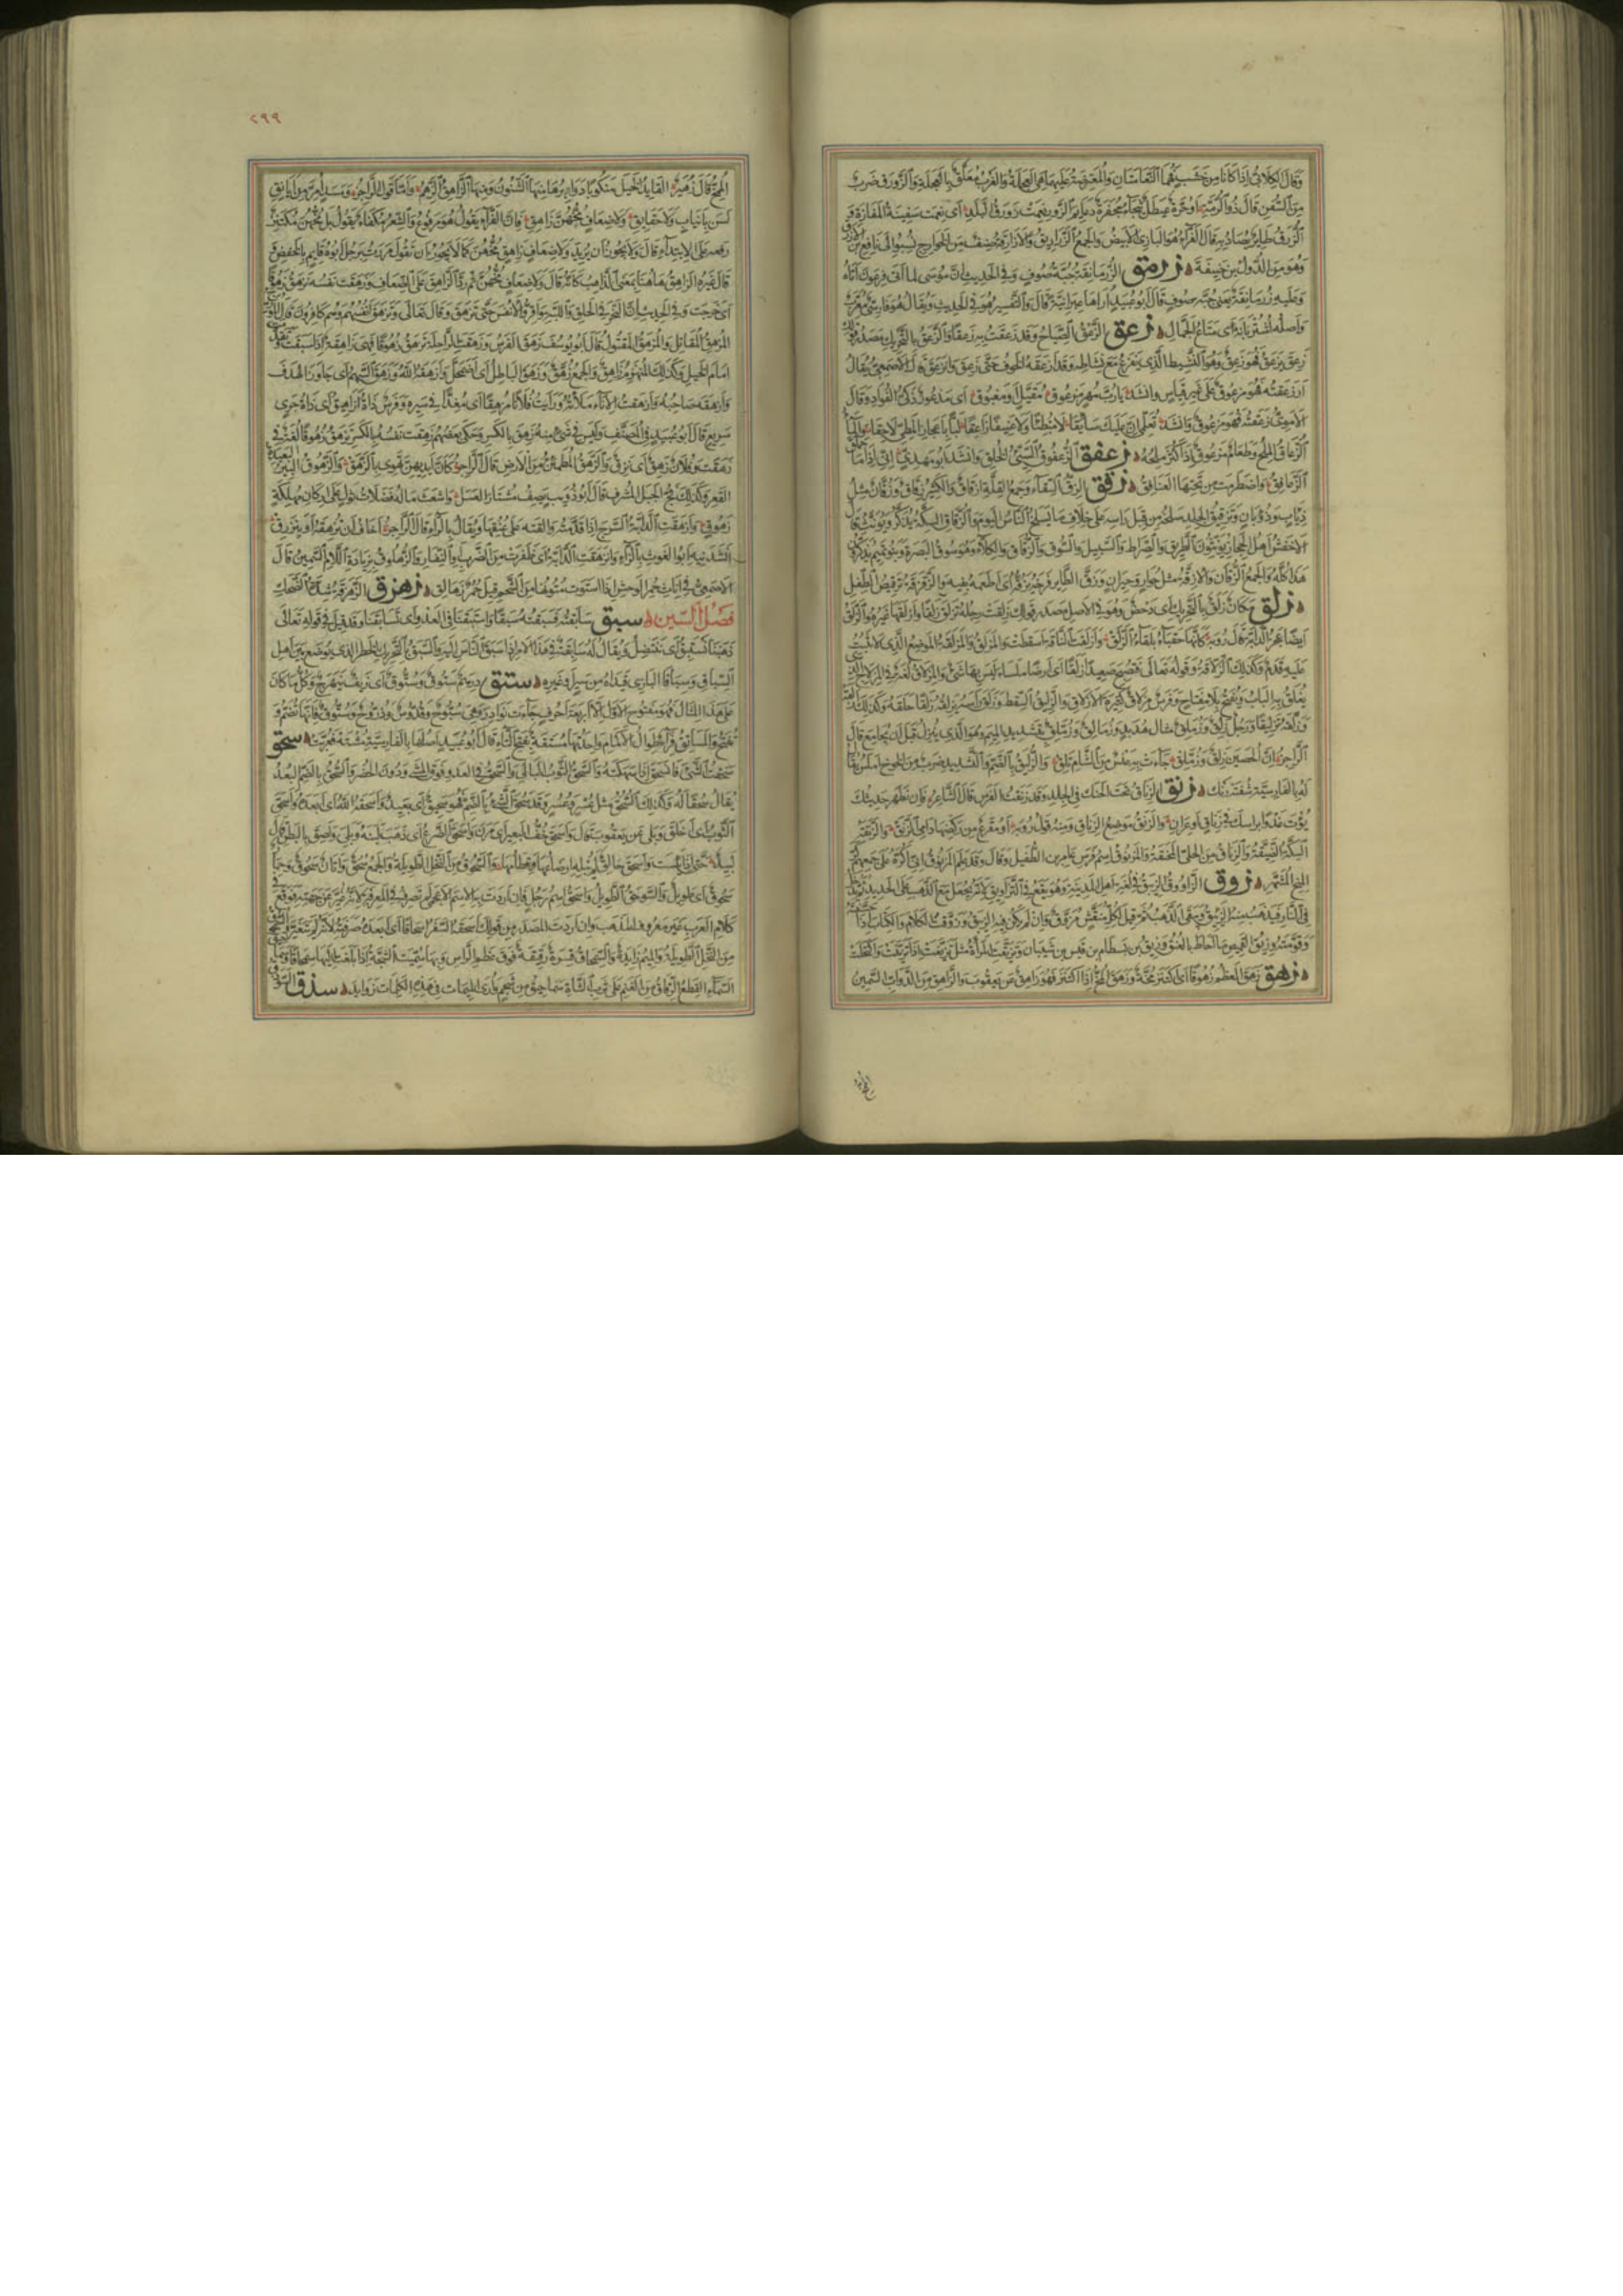 وقال الكلابي اذا كانا من خشب فهما النعامتان والمعترضة عليهما هي العجلة والغرب معلق بالعجلة والزورق ضرب
من السفن قال ذو الرمة او حرة عيطل ثبجاء مجفرة دعايم الزور نعمت زورق البلد اى نعمت سفينة المفازة و
الزرق طاير يصاد به قال الفراء هو البازى الابيض والجمع الزراريق والازارقة صنف من الخوارج نسبوا الى نافع بن الازرق
وهو من الدول بن حنيفة زرمق الزرمانقة جبة صوف وفى الحديث ان موسى لما اتى فرعون اتاه
وعليه زرمانقة يعنى جبة صوف قال ابو عبيد اراها عبرانية قال والتفسير هو فى الحديث ويقال هو فارسى معرب
واصله اشتربانه اى متاع الجمال زعق الزعق الصياح وقد زعقت به زعقا والزعق بالتحريك مصدر قولك
زعق يزعق فهو زعق وهو النشيط الذى يفزع مع نشاطه وقد ازعقه الخوف حتى زعق وانزعق قال الاصمعى يقال
ازعقته فهو مزعوق على غير قياس وانشد يا رب مهر مزعوق مقيل او مغبوق اى مذعور ذكى الفواد وقال
الاموى زعقته فهو مزعوق وانشد تعلمى ان عليك سايقا لا مبطئا ولا عنيفا زاعقا لبا باعجاز المطى لاحقا والماء
الزعاق الملح وطعام مزعوق اذا اكثر ملحه زعفق الزعفوق السيئ الخلق وانشد ابو مهدى انى اذا ما حملق
الزعافق واضطربت من تحتها العنافق زقق الزق السقاء وجمع القلة ازقاق والكثير زقاق وزقان مثل
ذياب وذوبان وتزقيق الجلد سلخه من قبل راسه على خلاف ما يسلخ الناس اليوم والزقاق السكة يذكر ويونث قال
الاخفش اهل الحجاز يونثون الطريق والصراط والسبيل والسوق والزقاق والكلاء وهو سوق البصرة وبنو تميم يذكرون
هذا كله والجمع الزقان والازقة مثل حوار وحوران وزق الطاير فرخه يزقه اى اطعمه بفيه والزقزقة ترقيص الطفل
زلق مكان زلق بالتحريك اى دحض وهو فى الاصل مصدر قولك زلقت رجله تزلق زلقا وازلقها غيره والزلق
ايضا عجز الدابة قال روبة كانها حقباء بلقاء الزلق وازلقت الناقة اسقطت والمزلق والمزلقة الموضع الذى لا يثبت
عليه قدم وكذلك الزلاقة وقوله تعالى فتصبح صعيدا زلقا اى ارضا ملساء ليس بها شئ والمزلاق لغة فى المزلاج الذى
يغلق به الباب ويفتح بلا مفتاح وفرس مزلاق كثيرة الازلاق والزليق السقط وزلق راسه يزلقه زلقا حلقه وكذلك ازلقه
وزلقه تزليقا ورجل زلق وزملق مثال هدبد وزمالق وزملق بتشديد الميم وهو الذى ينزل قبل ان يجامع قال
الراجز ان الحصين زلق وزملق جاءت به عنس من الشام تلق والزليق بالضم والتشديد ضرب من الخوخ املس يقال
له بالفارسية شفته رنك زنق الزناق تحت الحنك فى الجلد وقد زنقت الفرس قال الشاعر فان يظهر حديثك
يؤت عدوا براسك فى زناق او عران والزنق موضع الزناق ومنه قول روبة او مقرع من ركضها دامى الزنق والزنقة
السكة الضيقة والزناق من الحلى المخنقة والمزنوق اسم فرس عامر بن الطفيل وقال وقد علم المزنوق انى اكره على جمعهم كر
المنيح المشهر زوق الزاووق الزيبق فى لغة اهل المدينة وهو يقع فى التزاويق لانه يجعل مع الذهب على الحديد ثم يدخل
فى النار فيذهب منه الزيبق ويبقى الذهب ثم قيل لكل منقش مزوق وان لم يكن فيه الزيبق وزوقت الكلام والكتاب اذا حسنته
وقومته وزيق القميص ما احاط بالعنق وزيق بن بسطام بن قيس من شيبان وتزيقت المراة مثل تزيغت اذا تزينت واكتحلت
زهق زهق العظم زهوقا اى اكتنز مخه وزهق المخ اذا اكتنز فهو زاهق عن يعقوب والزاهق من الدواب السمين
المخ
٢٩٩
المخ قال زهير القايد الخيل منكوبا دوابرها منها الشنون ومنها الزاهق الزهم واما قول الراجز ومسد امر من ايانق
لسن بانياب ولا حقايق ولا ضعاف مخهن زاهق فان الفراء يقول هو مرفوع والشعر مكفاء يقول بل مخهن مكتنز
رفعه على الابتداء قال ولا يجوز ان يريد ولا ضعاف زاهق مخهن كما لا يجوز ان تقول مررت برجل ابوه قايم بالخفض و
قال غيره الزاهق هاهنا بمعنى الذاهب كانه قال ولا ضعاف مخهن ثم رد الزاهق على الضعاف وزهقت نفسه تزهق زهوقا
اى خرجت وفى الحديث ان النحر فى الحلق واللبة واقروا الانفس حتى تزهق وقال تعالى وتزهق انفسهم وهم كافرون قال
المزهق القاتل والمزهق المقتول قال ابو يوسف زهق الفرس وزهقت الراحلة تزهق زهوقا فهى زاهقة اذا سبقت وتقدمت
امام الخيل وكذلك المنهزم زاهق والجمع زهق وزهق الباطل اى اضمحل وازهقه الله وزهق السهم اى جاوز الهدف
وازهقه صاحبه وازهقت الاناء ملاته ورايت فلانا مزهقا اى مغذا فى سيره وفرس ذات ازاهيق اى ذات جرى
سريع قال ابو عبيد فى المصنف وليس فى شئ منه زهق بالكسر وحكى بعضهم زهقت نفسه بالكسر تزهق زهوقا لغة فى
زهقت وفلان زهق اى نزق والزهق المطمئن من الارض قال الراجز كان ايديهن تهوى بالزهق والزهوق البئر البعيدة
القعر وكذلك فج الجبل المشرف قال ابو ذويب يصف مشتار العسل واشعث ماله فضلات ثول على اركان مهلكة
زهوق وازهقت الدابة السرج اذا قدمته والقته على عنقها ويقال بالراء قال الراجز اخاف ان تزهقه او ينزرق
انشدنيه ابو الغوث بالراء وانزهقت الدابة اى طفرت من الضرب او النفار والزهلوق بزيادة اللام السمين قال
الاصمعى فى اناث حمر الوحش اذا استوت متونها من الشحم قيل حمر زهالق زهزق الزهزقة شدة الضحك
فصل السين سبق سابقته فسبقته سبقا واستبقنا فى العدو اى تسابقنا وقد قيل فى قوله تعالى
ذهبنا نستبق اى ننتضل ويقال له سابقة فى هذا الامر اذا سبق الناس اليه والسبق بالتحريك الخطر الذى يوضع بين اهل
السباق وسباقا البازى قيداه من سير او غيره ستق درهم ستوق وستوق اى زيف بهرج وكل ما كان
على هذا المثال فهو مفتوح الاول الا اربعة احرف جاءت نوادر وهى سبوح وقدوس وذروح وستوق فانها تضم و
تفتح والمساتق فراء طوال الاكمام واحدتها مستقة بفتح التاء قال ابو عبيد اصلها بالفارسية مشته فعربت سحق
سحقت الشئ فانسحق اذا سهكته والسحق الثوب البالى والسحق فى العدو فوق المشى ودون الحضر والسحق بالضم البعد
يقال سحقا له وكذلك السحق مثل عسر وعسر وقد سحق الشئ بالضم فهو سحيق اى بعيد واسحقه الله اى ابعده واسحق
الثوب اى اخلق وبلى عن يعقوب قال واسحق خف البعير اى مرن واسحق الضرع اى ذهب لبنه وبلى ولصق بالبطن قال
لبيد حتى اذا يبست واسحق حالق لم يبله ارضاعها وفطامها والسحوق من النخل الطويلة والجمع سحق واتان سحوق وحمار
سحوق اى طويل والسوحق الطويل واسحق اسم رجل فان اردت به الاسم الاعجمى لم تصرفه فى المعرفة لانه غير عن جهته فوقع فى
كلام العرب غير معروف المذهب وان اردت المصدر من قولك اسحقه السفر اسحاقا اى ابعده صرفته لانه لم يتغير والسمحوق
من النخل الطويلة والميم زايدة والسمحاق قشرة رقيقة فوق عظم الراس وبها سميت الشجة اذا بلغت اليها سمحاقا وعلى
السماء القطع الرقاق من الغيم وعلى ثرب الشاة سماحيق من شحم وارى الميمات فى هذه الكلمات زوايد سذق السوذق